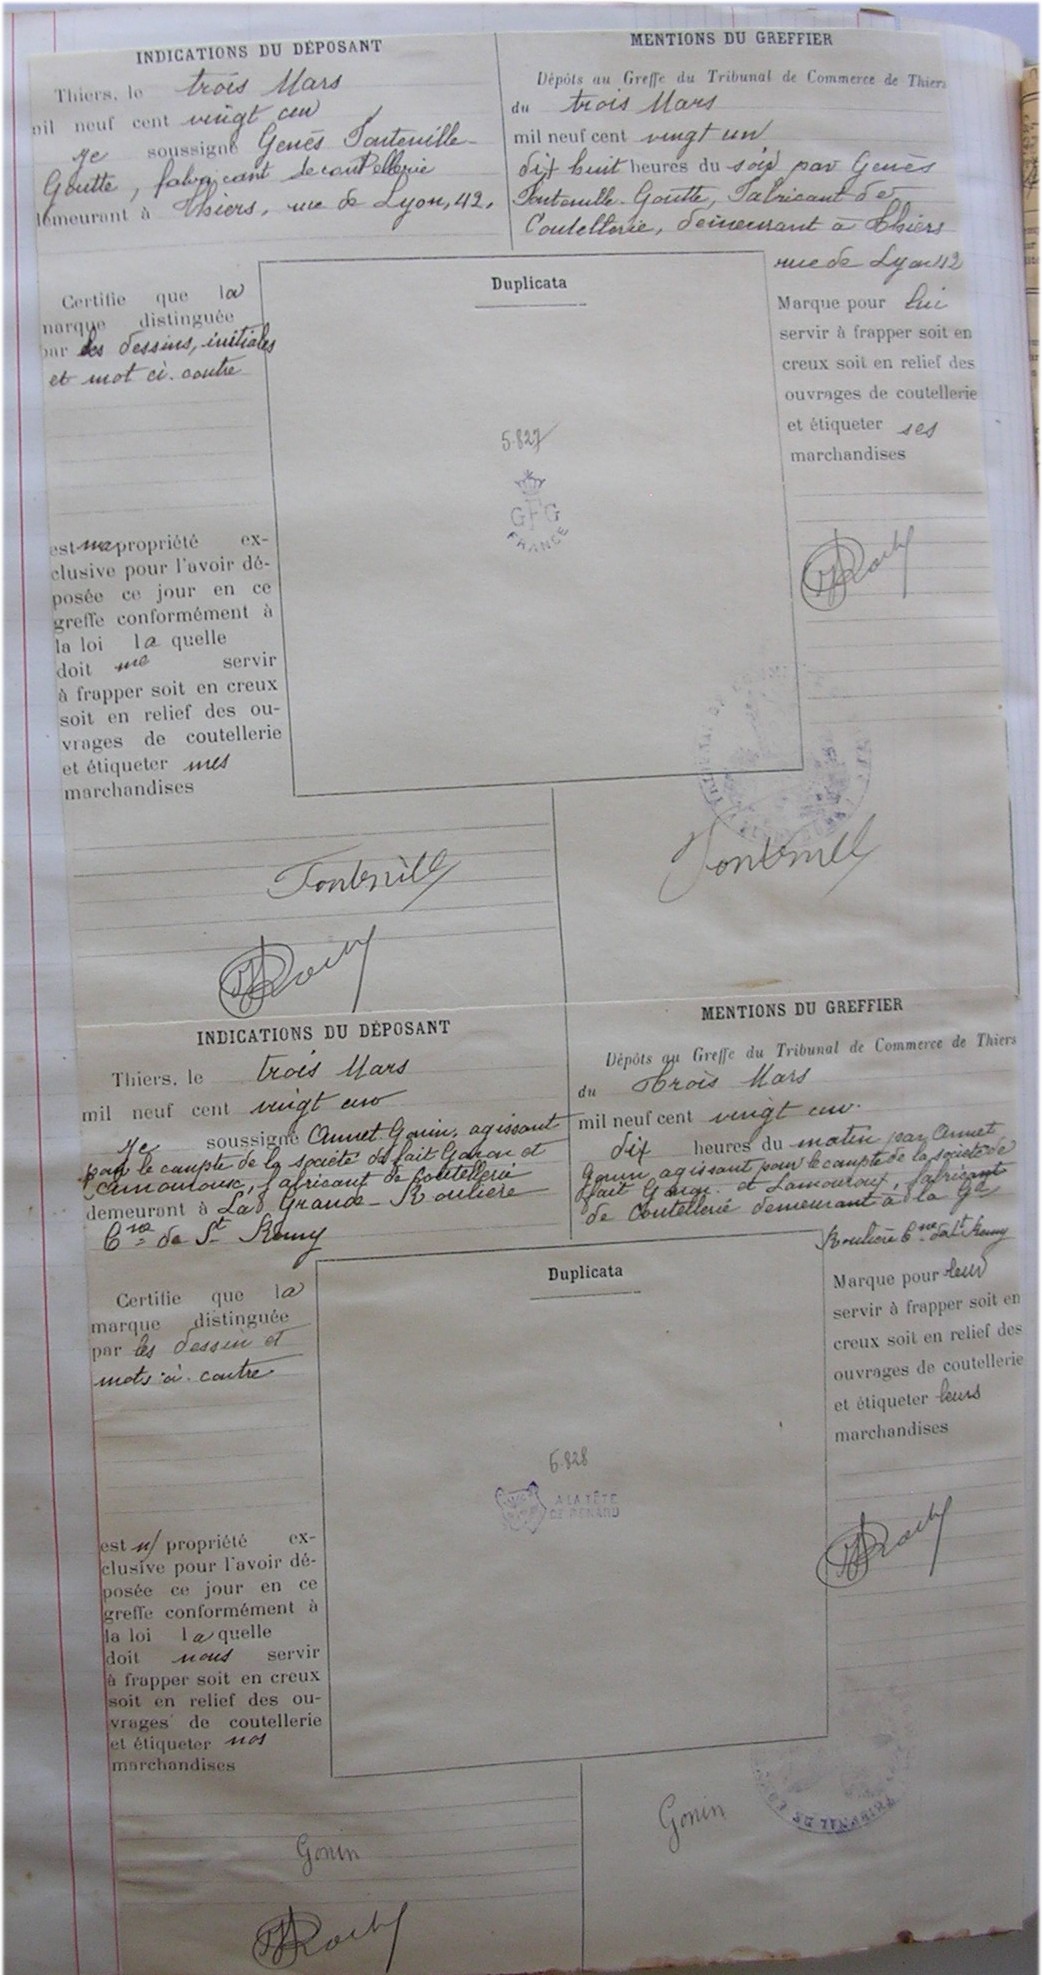 INDICATIONS DU DÉPOSANT
Thiers, le trois Mars
mil neuf cent vingt un
Je soussigné Genès Fontenille-
Goutte, fabricant de coutellerie
demeurant à Thiers, rue de Lyon, 42.
MENTIONS DU GREFFIER
Dépôts au Greffe du Tribunal de Commerce de Thiers
du trois Mars
mil neuf cent vingt un
dix huit heures du soir par Genès
Fontenille-Goutte, Fabricant de
Coutellerie, demeurant à Thiers
rue de Lyon 42
Certifie que la
marque distinguée
par les dessins, initiales
et mot ci-contre
est ma propriété ex-
clusive pour l'avoir dé-
posée ce jour en ce
greffe conformément à
la loi laquelle
doit me servir
à frapper soit en creux
soit en relief des ou-
vrages de coutellerie
et étiqueter mes
marchandises
Duplicata
5.827
GFG
FRANCE
Marque pour lui
servir à frapper soit en
creux soit en relief des
ouvrages de coutellerie
et étiqueter ses
marchandises
Fontenille
Fontenille
INDICATIONS DU DÉPOSANT
Thiers, le trois Mars
mil neuf cent vingt un
Je soussigné Annet Gonin, agissant
pour le compte de la société de fait Garon et
Lamouroux, fabricant de Coutellerie
demeurant à La Grande-Roulière
Cne de St Remy
MENTIONS DU GREFFIER
Dépôts au Greffe du Tribunal de Commerce de Thiers
du trois Mars
mil neuf cent vingt un
dix heures du matin par Annet
Gonin agissant pour le compte de la société de
fait Garon et Lamouroux, fabricants
de Coutellerie demeurant à la Gde
Roulière Cne de St Remy
Certifie que la
marque distinguée
par les dessin et
mots ci-contre
est n/ propriété ex-
clusive pour l'avoir dé-
posée ce jour en ce
greffe conformément à
la loi laquelle
doit nous servir
à frapper soit en creux
soit en relief des ou-
vrages de coutellerie
et étiqueter nos
marchandises
Duplicata
5.828
A LA TÊTE
DE RENARD
Marque pour leur
servir à frapper soit en
creux soit en relief des
ouvrages de coutellerie
et étiqueter leurs
marchandises
Gonin
Gonin
TRIBUNAL DE